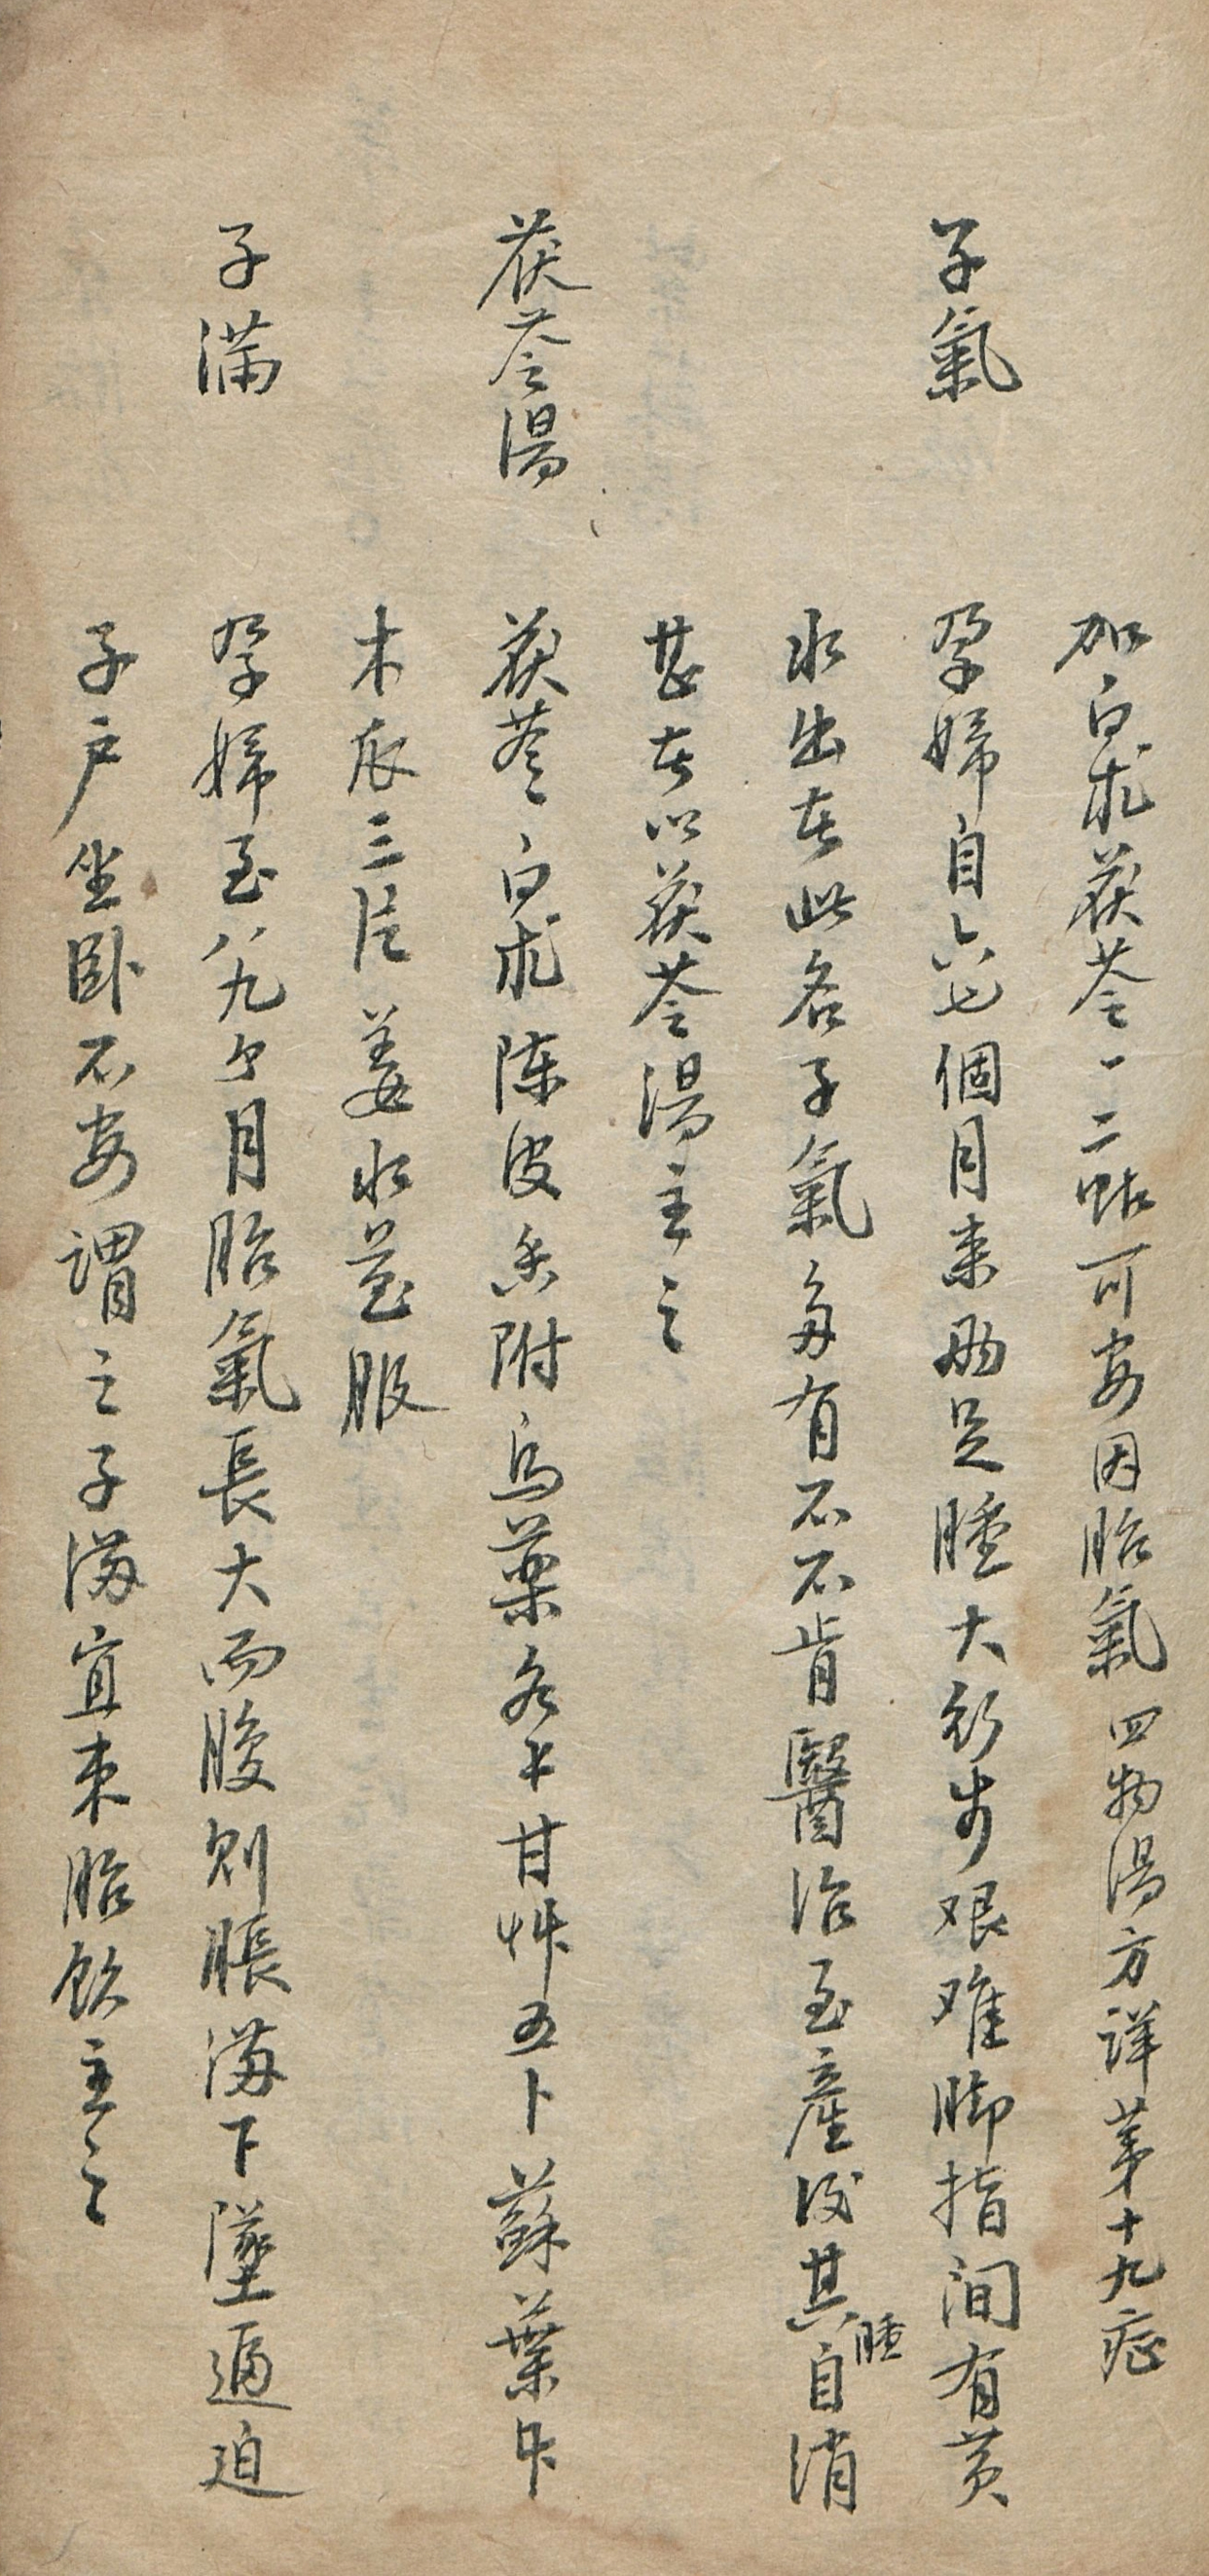 加白朮茯苓一二帖可安因胎氣四物湯方詳茅十九症
子氣 孕婦自六七個月来两足腫大行步艰难脚指间有黄
水出者此名子氣多有不不肯醫治至產后其腫自消
甚者以茯苓湯主之
茯苓湯 茯苓白朮陳皮香附烏薬各 甘艸五卜蘇葉
木瓜三片姜水 服
子满 孕婦至八九个月胎氣長大而腹則脹满下墜逼迫
子户坐卧不安謂之子满宜束胎飲主之